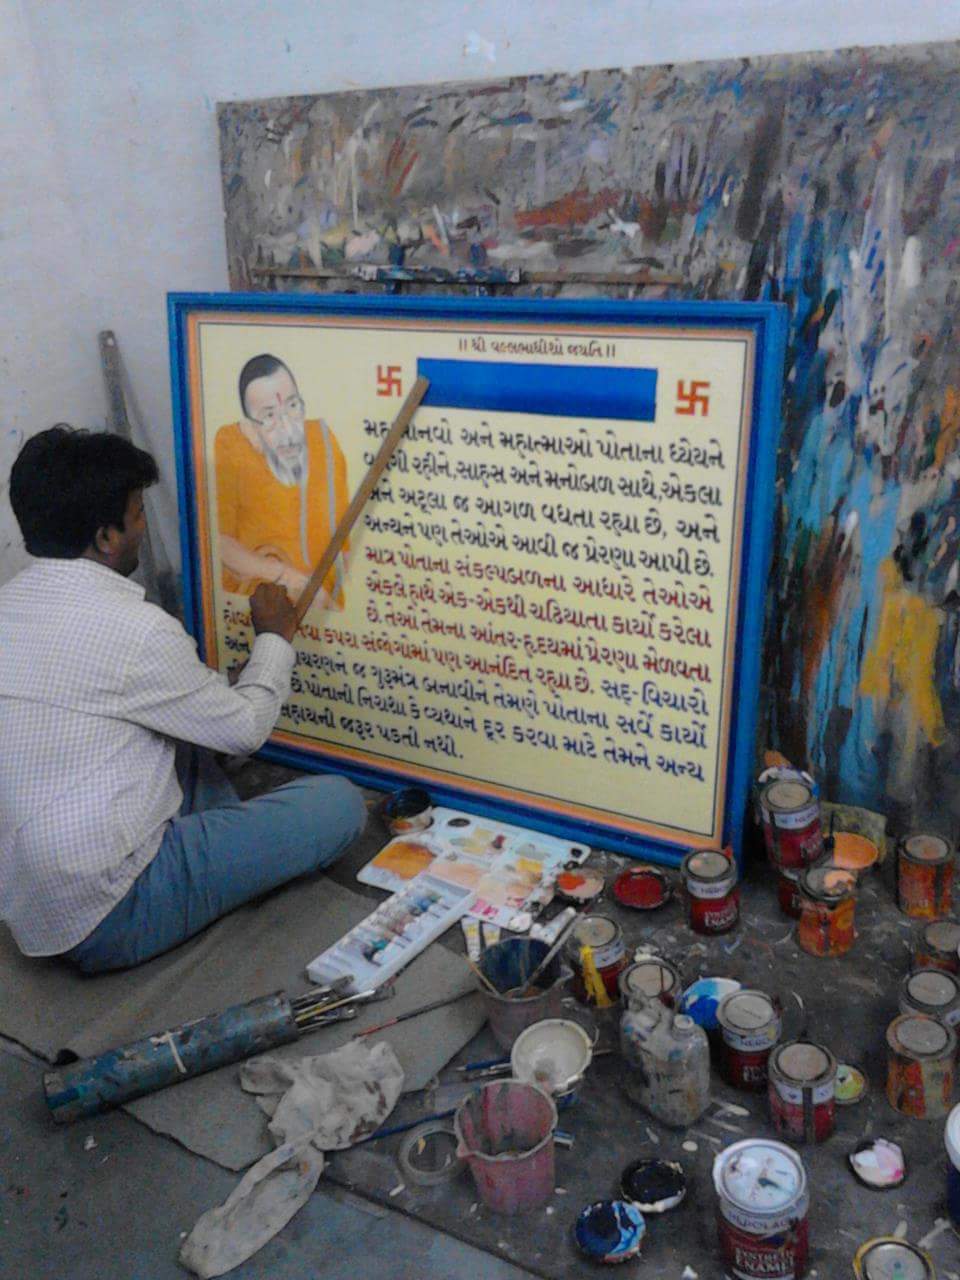 ॥ શ્રી વલ્લભાધીશો જયતિ ॥
અને મહાત્માઓ પોતાના ધ્યેયને
રહીને, સાહસ અને મનોબળ સાથે, એકલા
અને અટૂલા જ આગળ વધતા રહ્યા છે, અને
અન્યને પણ તેઓએ આવી જ પ્રેરણા આપી છે.
માત્ર પોતાના સંકલ્પબળના આધારે તેઓએ
એકલે હાથે એક-એકથી ચઢિયાતા કાર્યો કરેલા
છે. તેઓ તેમના આંતર-હૃદયમાં પ્રેરણા મેળવતા
કપરા સંજોગોમાં પણ આનંદિત રહ્યા છે. સદ્-વિચારો
અને જ ગુરુમંત્ર બનાવીને તેમણે પોતાના સર્વે કાર્યો
છે. પોતાની નિરાશા કે વ્યથાને દૂર કરવા માટે તેમને અન્ય
સહાયની જરૂર પડતી નથી.
HEROLAC
SYNTHETIC
ENAMEL